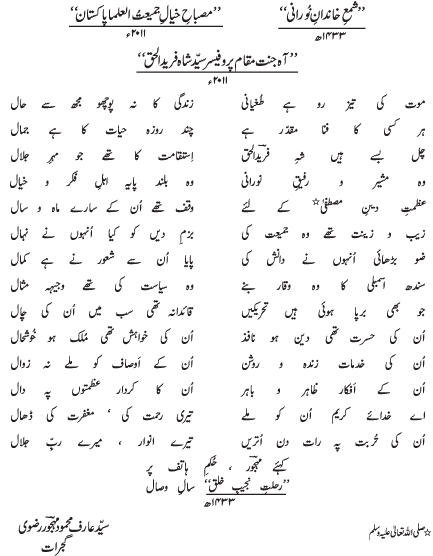 ”شمعِ خاندانِ نُورانی“ ”مصباحِ خیالِ جمیعتُ العلما پاکستان“
۱۴۳۳ھ ۲۰۱۱ء
”آہ جنت مقام پروفیسر سیّد شاہ فرید الحق“
۲۰۱۱ء
موت کی تیز رو ہے طُغیانی زندگی کا نہ پوچھو مجھ سے حال
ہر کسی کا فنا مقدّر ہے چند روزہ حیات کا ہے جمال
چل بسے ہیں شہِ فرید الحق اِستقامت کا تھے جو مہرِ جلال
وہ مشیر و رفیقِ نورانی وہ بلند پایہ اہلِ فکر و خیال
عظمتِ دینِ مصطفیٰ☆ کے لئے وقف تھے اُن کے سارے ماہ و سال
زیب و زینت تھے وہ جمیعت کی بزمِ دیں کو کیا اُنہوں نے نہال
ضو بڑھائی اُنہوں نے دانش کی پایا اُن سے شعور نے ہے کمال
سندھ اسمبلی کا وہ وقار بنے وہ سیاست کی تھے وجیہہ مثال
جو بھی برپا ہوئی ہیں تحریکیں قائدانہ تھی سب میں اُن کی چال
اُن کی حسرت تھی دین ہو نافذ اُن کی خواہش تھی مُلک ہو خُوشحال
اُن کی خدمات زندہ و روشن اُن کے اَوصاف کو ملے نہ زوال
اُن کے اَفکار ظاہر و باہر اُن کا کردار عظمتوں پہ دال
اے خدائے کریم اُن کو ملے تیری رحمت کی ، مغفرت کی ڈھال
اُن کی تُربت پہ رات دن اُتریں تیرے انوار ، میرے ربِّ جلال
کہئے مہجورؔ ، حُکمِ ہاتف پر
”رحلتِ نجیبِ خلق“ سالِ وصال
۱۴۳۳ھ
☆صلی اللہ تعالیٰ علیہ وسلم سیّد عارف محمود مہجورؔ رضوی
گجرات